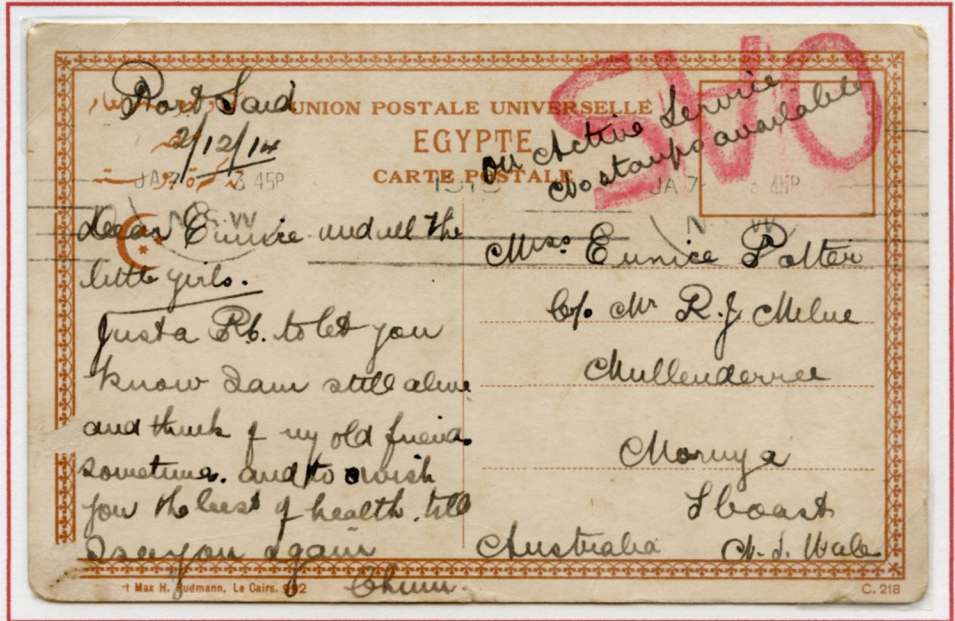 Port Said
2/12/14
UNION POSTALE UNIVERSELLE
EGYPTE
CARTE POSTALE
SVO
On Active Service
No stamps available
JA 7 3 45P
N.S.W
1915
JA 7 3 45P
N W
Dear Eunice and all the
little girls.
Just a P.C. to let you
know I am still alive
and think of my old friends
sometimes. and to wish
you the best of health. till
I see you again
Chum.
Miss Eunice Potter
C/o Mr R. J. Milne
Mullenderree
Moruya
S Coast
Australia N. S. Wales
Max H. Rudmann, Le Caire.
C. 218